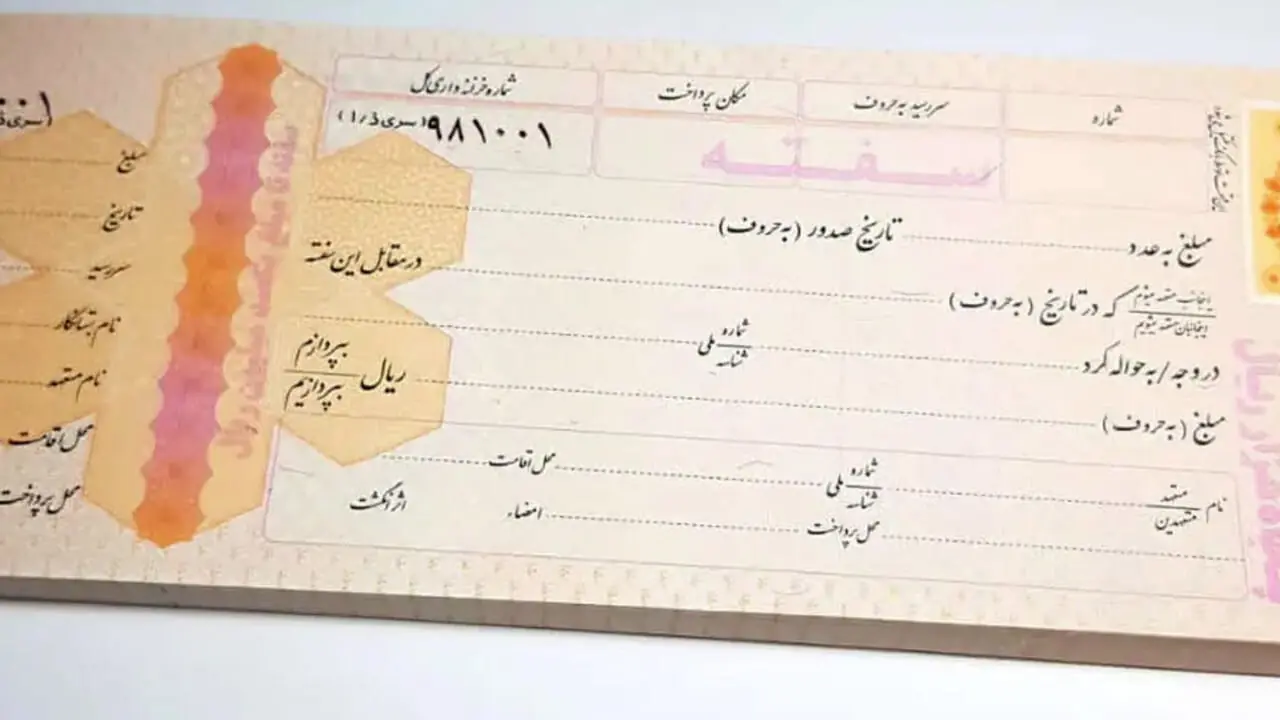 شماره
سررسید به حروف
مکان پرداخت
شماره خزانه داری کل
سفته
۹۸۱۰۰۱ (سری ذ/۱)
مبلغ به عدد
تاریخ صدور (به حروف)
اینجانب متعهد میشوم
اینجانبان متعهد میشویم
که در تاریخ (به حروف)
در مقابل این سفته
در وجه / به حواله کرد
شماره
شناسه
ملی
مبلغ (به حروف)
ریال
بپردازم
بپردازیم
نام
متعهد
متعهدین
شماره
شناسه
ملی
محل اقامت
محل پرداخت
امضاء
اثر انگشت
مبلغ
تاریخ
سررسید
نام بستانکار
نام متعهد
محل اقامت
محل پرداخت